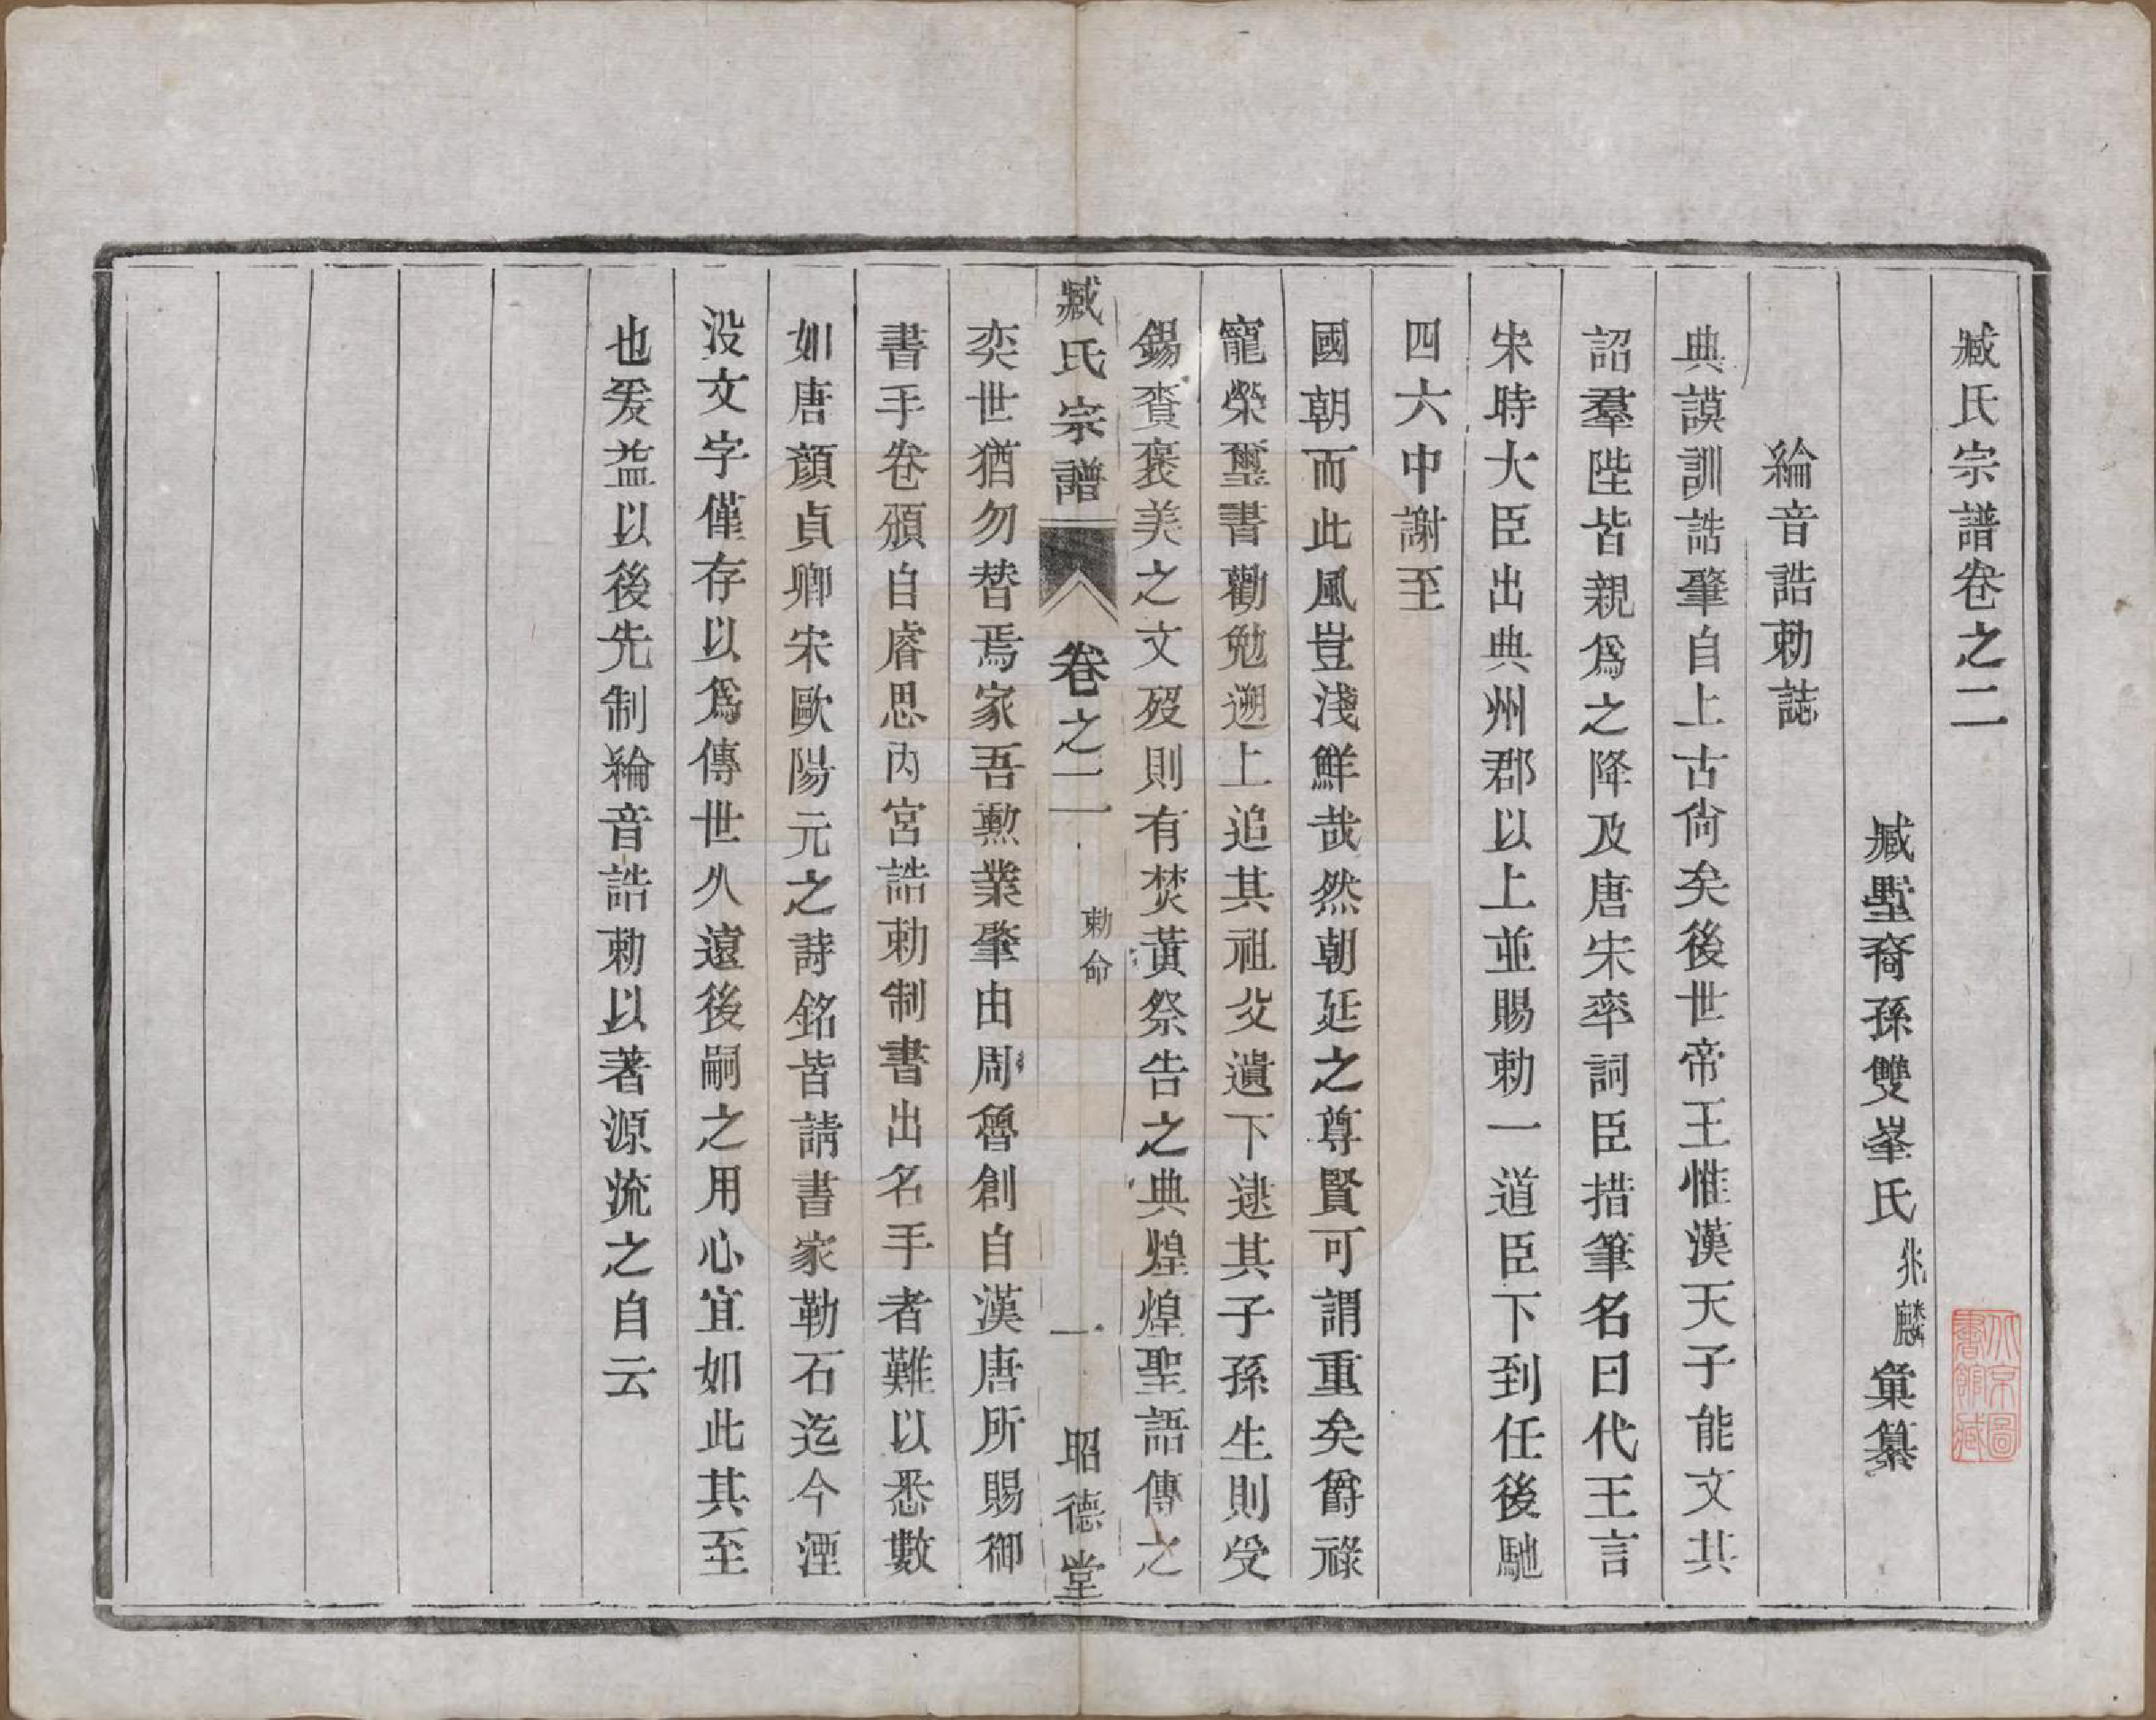 臧氏宗譜卷之二
臧墅裔孫雙峯氏兆麟彙纂
綸音誥勅誌
典謨訓誥肇自上古尙矣後世帝王惟漢天子能文其
詔羣陛皆親爲之降及唐宋率詞臣措筆名曰代王言
宋時大臣出典州郡以上並賜勅一道臣下到任後馳
四六中謝至
國朝而此風豈淺鮮哉然朝廷之尊賢可謂重矣爵祿
寵榮璽書勸勉遡上追其祖父遺下逮其子孫生則受
錫賚褒美之文歿則有焚黃祭告之典煌煌聖語傳之
臧氏宗譜
卷之二
勅命
一
昭德堂
奕世猶勿替焉家吾勲業肇由周魯創自漢唐所賜御
書手卷頒自睿思內宮誥勅制書出名手者難以悉數
如唐顏貞卿宋歐陽元之詩銘皆請書家勒石迄今湮
没文字僅存以爲傳世久遠後嗣之用心宜如此其至
也爰益以後先制綸音誥勅以著源流之自云